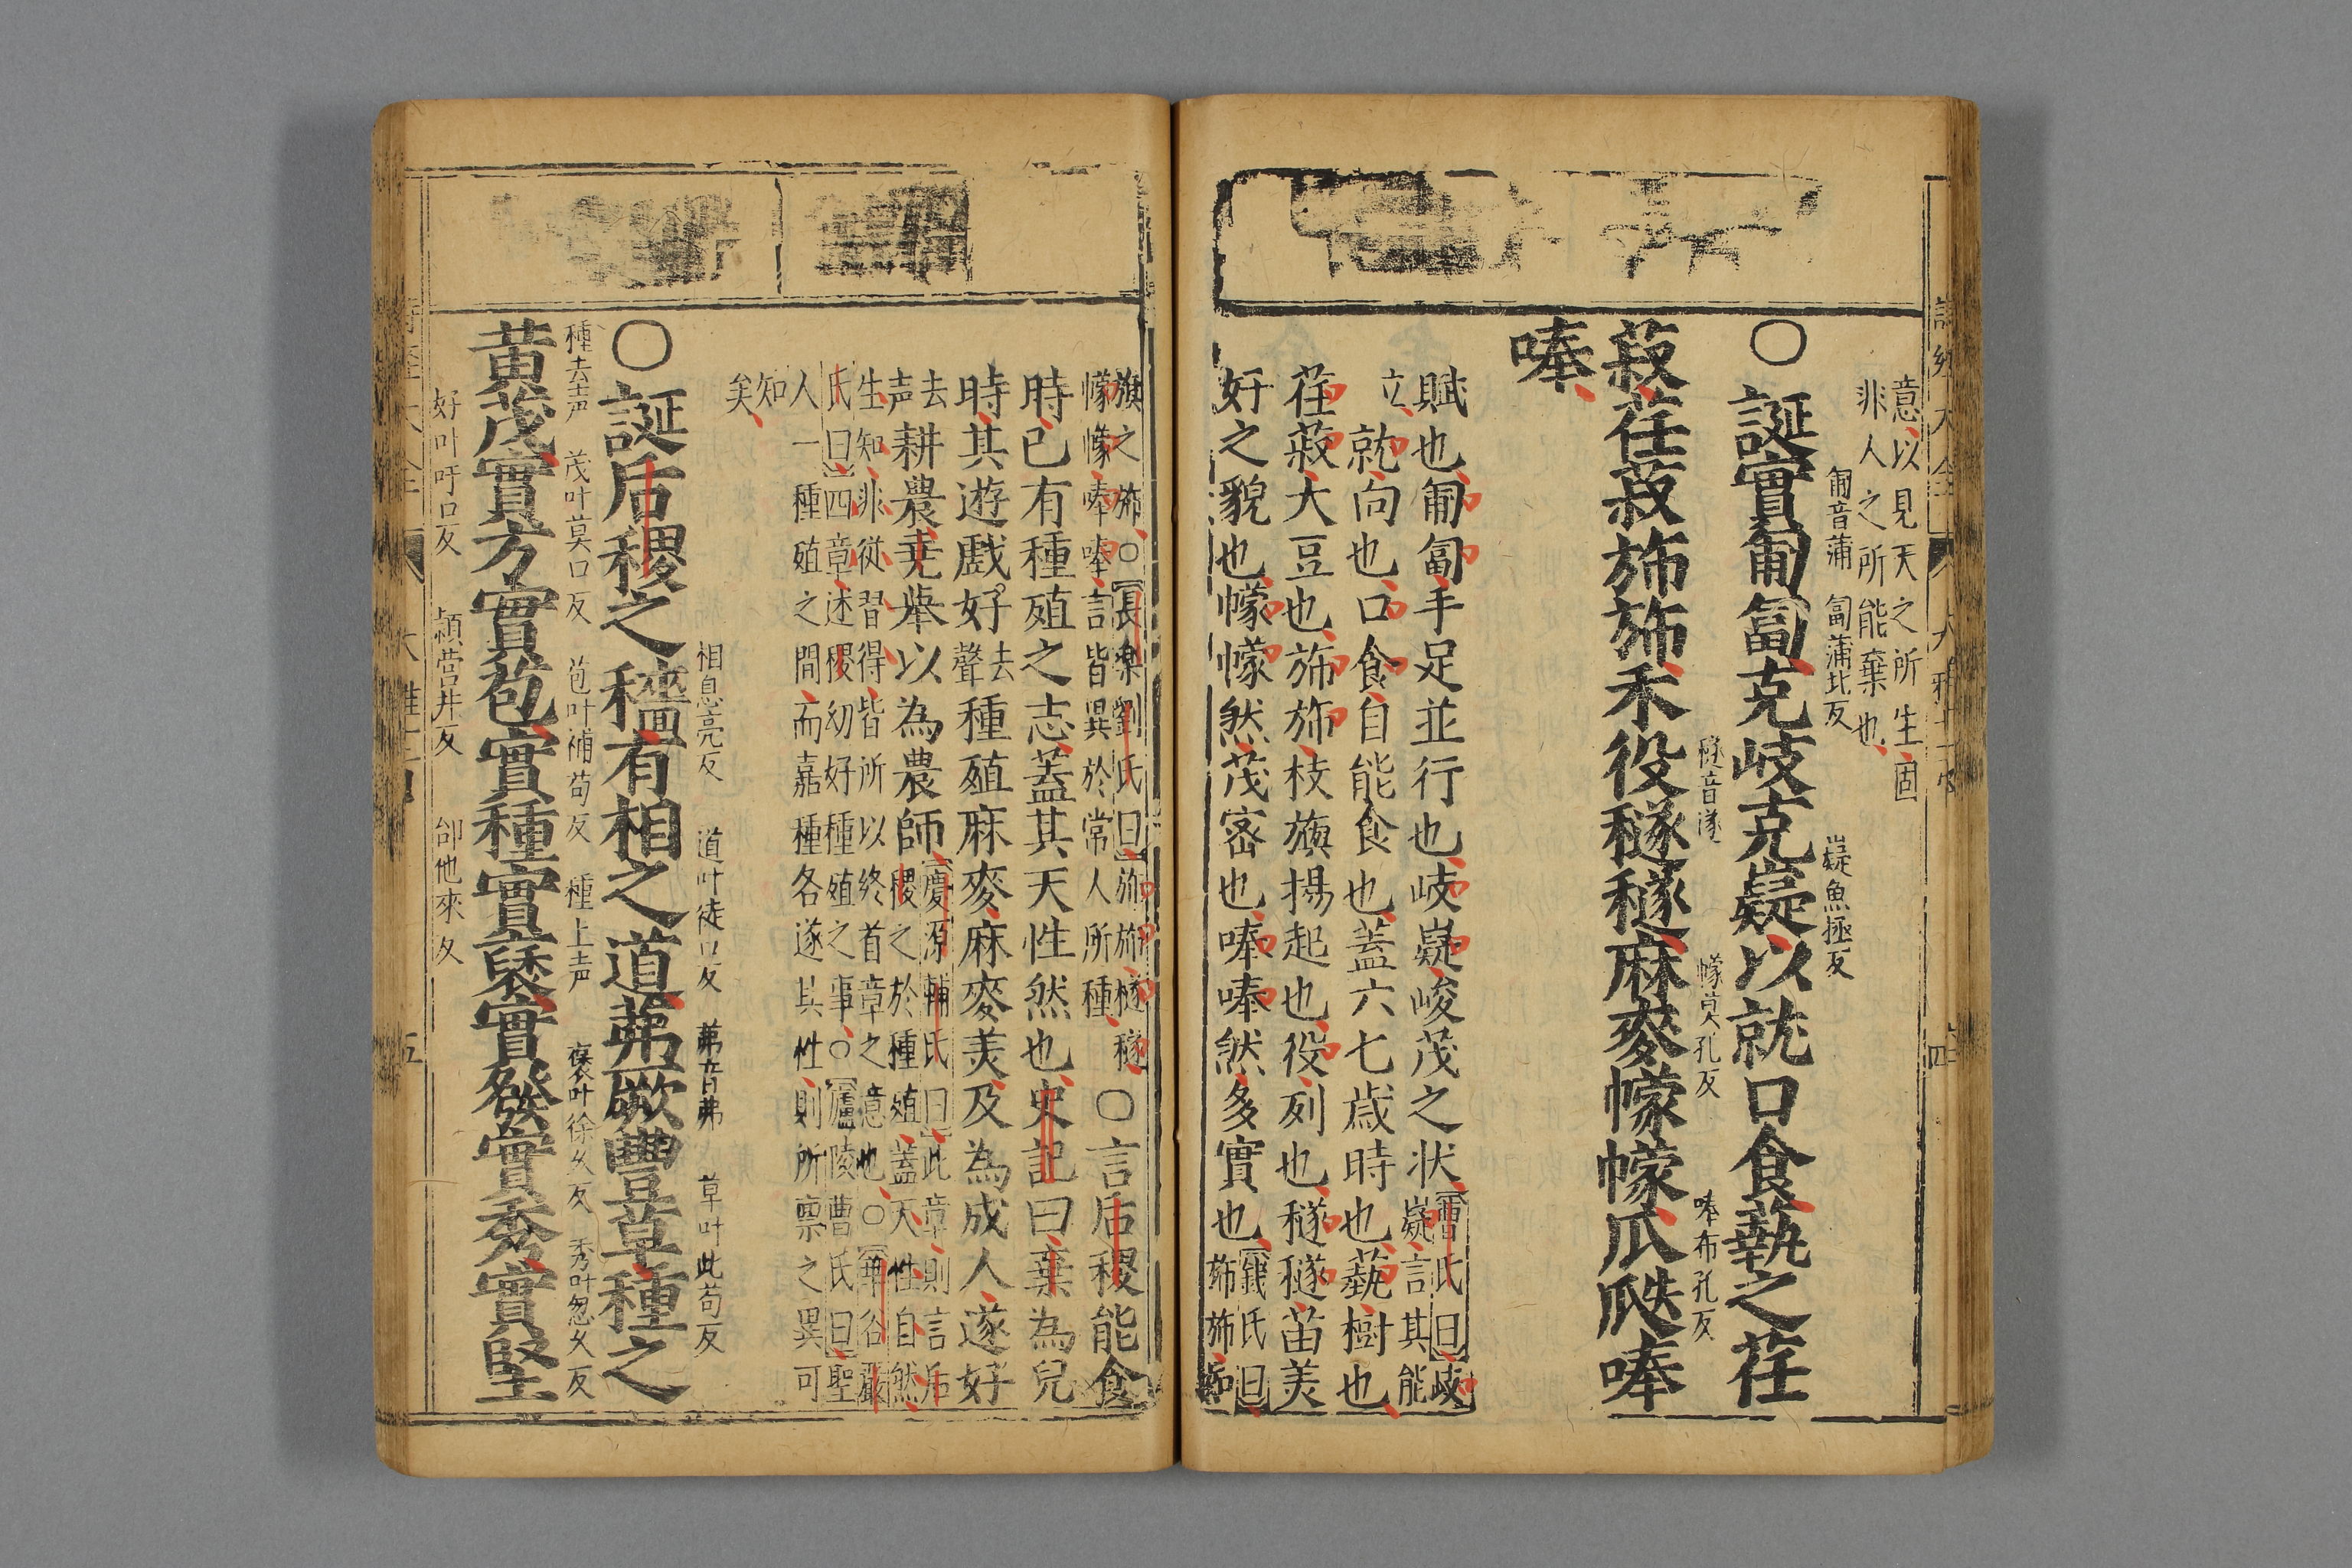 意以見天之所生固
非人之所能棄也
匍音蒲 匐蒲北反 嶷魚極反
○誕實匍匐克岐克嶷以就口食蓺之荏
菽荏菽斾斾禾役穟穟麻麥幪幪瓜瓞唪
穟音遂 幪莫孔反 唪布孔反
唪
賦也匍匐手足並行也岐嶷峻茂之状
曹氏曰岐
嶷言其能
立
就向也口食自能食也蓋六七歳時也蓺樹也
荏菽大豆也斾斾枝旟揚起也役列也穟穟苗美
好之貌也幪幪然茂宻也唪唪然多實也
錢氏曰
斾斾如
旗之斾○長樂劉氏曰斾斾穟穟
幪幪唪唪言皆異於常人所種
○言后稷能食
時已有種殖之志蓋其天性然也史記曰棄為兒
時其遊戱好
去
聲
種殖麻麥麻麥美及為成人遂好
去
声
耕農堯舉以為農師
慶源輔氏曰此章則言后
稷之於種殖蓋天性自然
生知非従習得皆所以終首章之意也○華谷嚴
氏曰四章述稷幼好種殖之事○廬陵曹氏曰聖
人一種殖之間而嘉種各遂其性則所禀之異可
知
矣
相息亮反 道叶徒口反 茀音弗 草叶此苟反
○誕后稷之穡有相之道茀厥豐草種之
種去声 茂叶莫口反 苞叶補苟反 種上声 褎叶徐久反 秀叶忽久反
黄茂實方實苞實種實褎實發實秀實堅
好叶吁口反 頴營井反 邰他來反
五
四